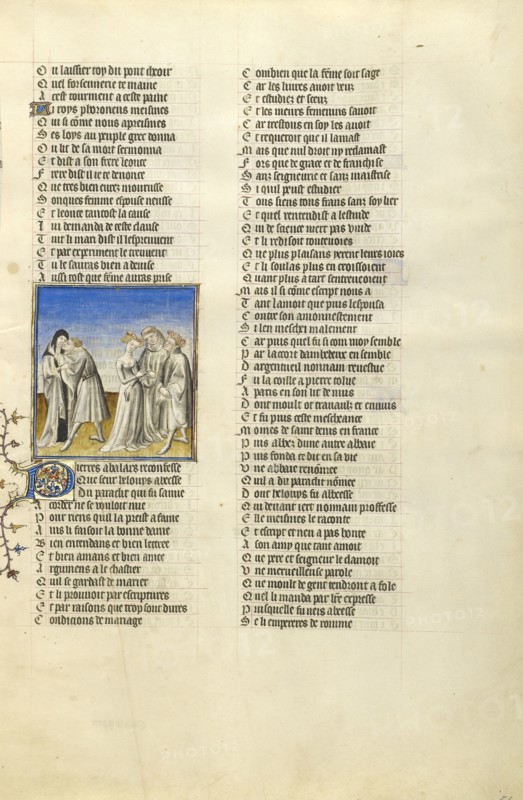 O u laissier roy du pont cheoir
Q uel forsennerie te maine
A cest tourment a ceste paine
L i roys phoroneus meismes
Q ui si cõme nous apreismes
S es loys au peuple grec donna
O u lit de sa mort sermonna
E t dist a son frere leonce
F rere dist il ie te denonce
Q ue tres bien eurez mourusse
S onques femme espouse neusse
E t leonce tantost la cause
L ui demanda de ceste clause
T uit li mari dist il lespreuuent
E t par experiment le treuuent
T u le sauras bien a deuise
A ussi tost que fẽme auras prise
P ierres abalars reconfesse
Que seur helouys abesse
Du paraclit qui fu samie
A corder ne se vouloit mie
P our riens quil la preist a fame
A ins li faisoit la bonne dame
B ien entendans et bien lettree
E t bien amans et bien amee
A rgumens a le chastier
Q uil se gardast de marier
E t li prouuoit par escriptures
E t par raisons que trop sont dures
C ondicions de mariage
C ombien que la fẽme soit sage
C ar les liures auoit veuz
E t estudiez et sceuz
E t les meurs femenins sauoit
C ar trestous en soy les auoit
E t requeroit que il lamast
M ais que nul droit ny reclamast
F ors que de grace et de franchise
S anz seigneurie et sanz maistrise
S i quil peust estudier
T ous siens tous frans sanz soy lier
E t quel rentendist a lestude
Q ui de science nert pas vuide
E t li redisoit toutevoies
Q ue plus plaisans perent leurs ioies
E t li soulas plus en croissoient
Q uant plus a tart sentreueoient
M ais il si cõme escript nous a
T ant lamoit que puis lespousa
C ontre son amonnestement
S i len meschei malement
C ar puis quel fu si com moy semble
P ar lacort dambedeux en semble
D argentueil nonnain reuestue
F u la coille a pierre tolue
A paris en son lit de nuis
D ont moult ot trauaulz et ennuis
E t fu puis ceste mescheance
M oines de saint denis en france
P uis abbez dune autre abbaie
P uis fonda ce dit en sa vie
V ne abbaie renõmee
Q uil a du paraclit nõmee
D ont helouys fu abbesse
Q ui deuant iert nonnain professe
E lle meismes le raconte
E t escript et nen a pas honte
A son amy que tant amoit
Q ue pere et seigneur le clamoit
V ne merueilleuse parole
Q ue moult de gent tendront a fole
Q uel li manda par lr̃e expresse
P uisquelle fu neis abesse
S e li empereres de romme